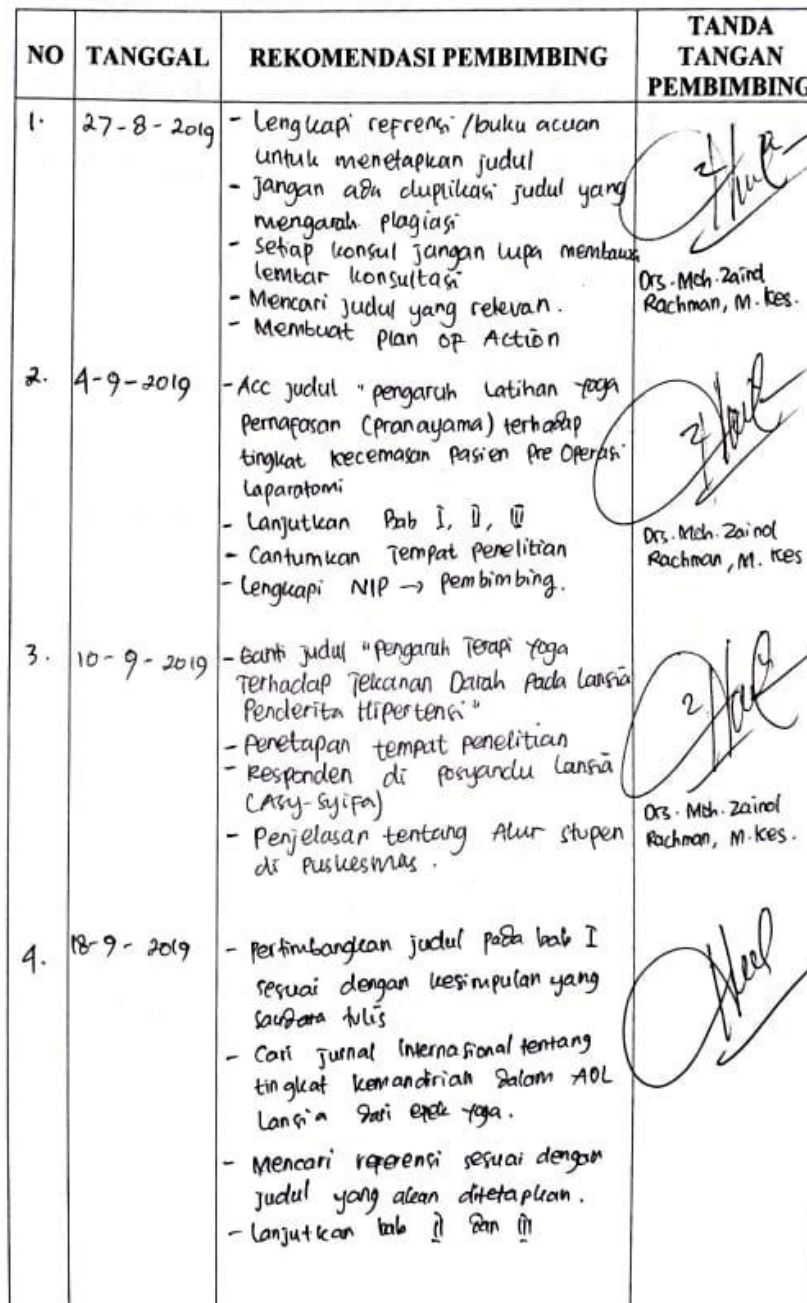 NO TANGGAL REKOMENDASI PEMBIMBING TANDA TANGAN PEMBIMBING
1. 27-8-2019 - Lengkapi refrensi /buku acuan
untuk menetapkan judul
- jangan ada duplikasi judul yang
mengarah plagiasi
- Setiap konsul jangan lupa membawa
lembar konsultasi
- Mencari judul yang relevan.
- Membuat Plan OF Action
Drs. Moh. Zainol
Rachman, M. Kes.
2. 4-9-2019 - Acc judul "pengaruh Latihan yoga
Pernafasan (pranayama) terhadap
tingkat kecemasan Pasien Pre Operasi
Laparatomi
- Lanjutkan Bab I, II, III
- Cantumkan Tempat Penelitian
- Lengkapi NIP → Pembimbing.
Drs. Moh. Zainol
Rachman, M. Kes
3. 10-9-2019 - Ganti judul "Pengaruh Terapi Yoga
Terhadap Tekanan Darah Pada Lansia
Penderita Hipertensi"
- Penetapan tempat penelitian
- Responden di posyandu Lansia
(Asy-Syifa)
- Penjelasan tentang Alur stupen
di Puskesmas.
Drs. Moh. Zainol
Rachman, M. Kes.
4. 18-9-2019 - Pertimbangkan judul pada bab I
sesuai dengan kesimpulan yang
saudara tulis
- Cari Jurnal Internasional tentang
tingkat kemandirian dalam ADL
Lansia dari efek yoga.
- Mencari referensi sesuai dengan
judul yang akan ditetapkan.
- Lanjutkan bab II dan III